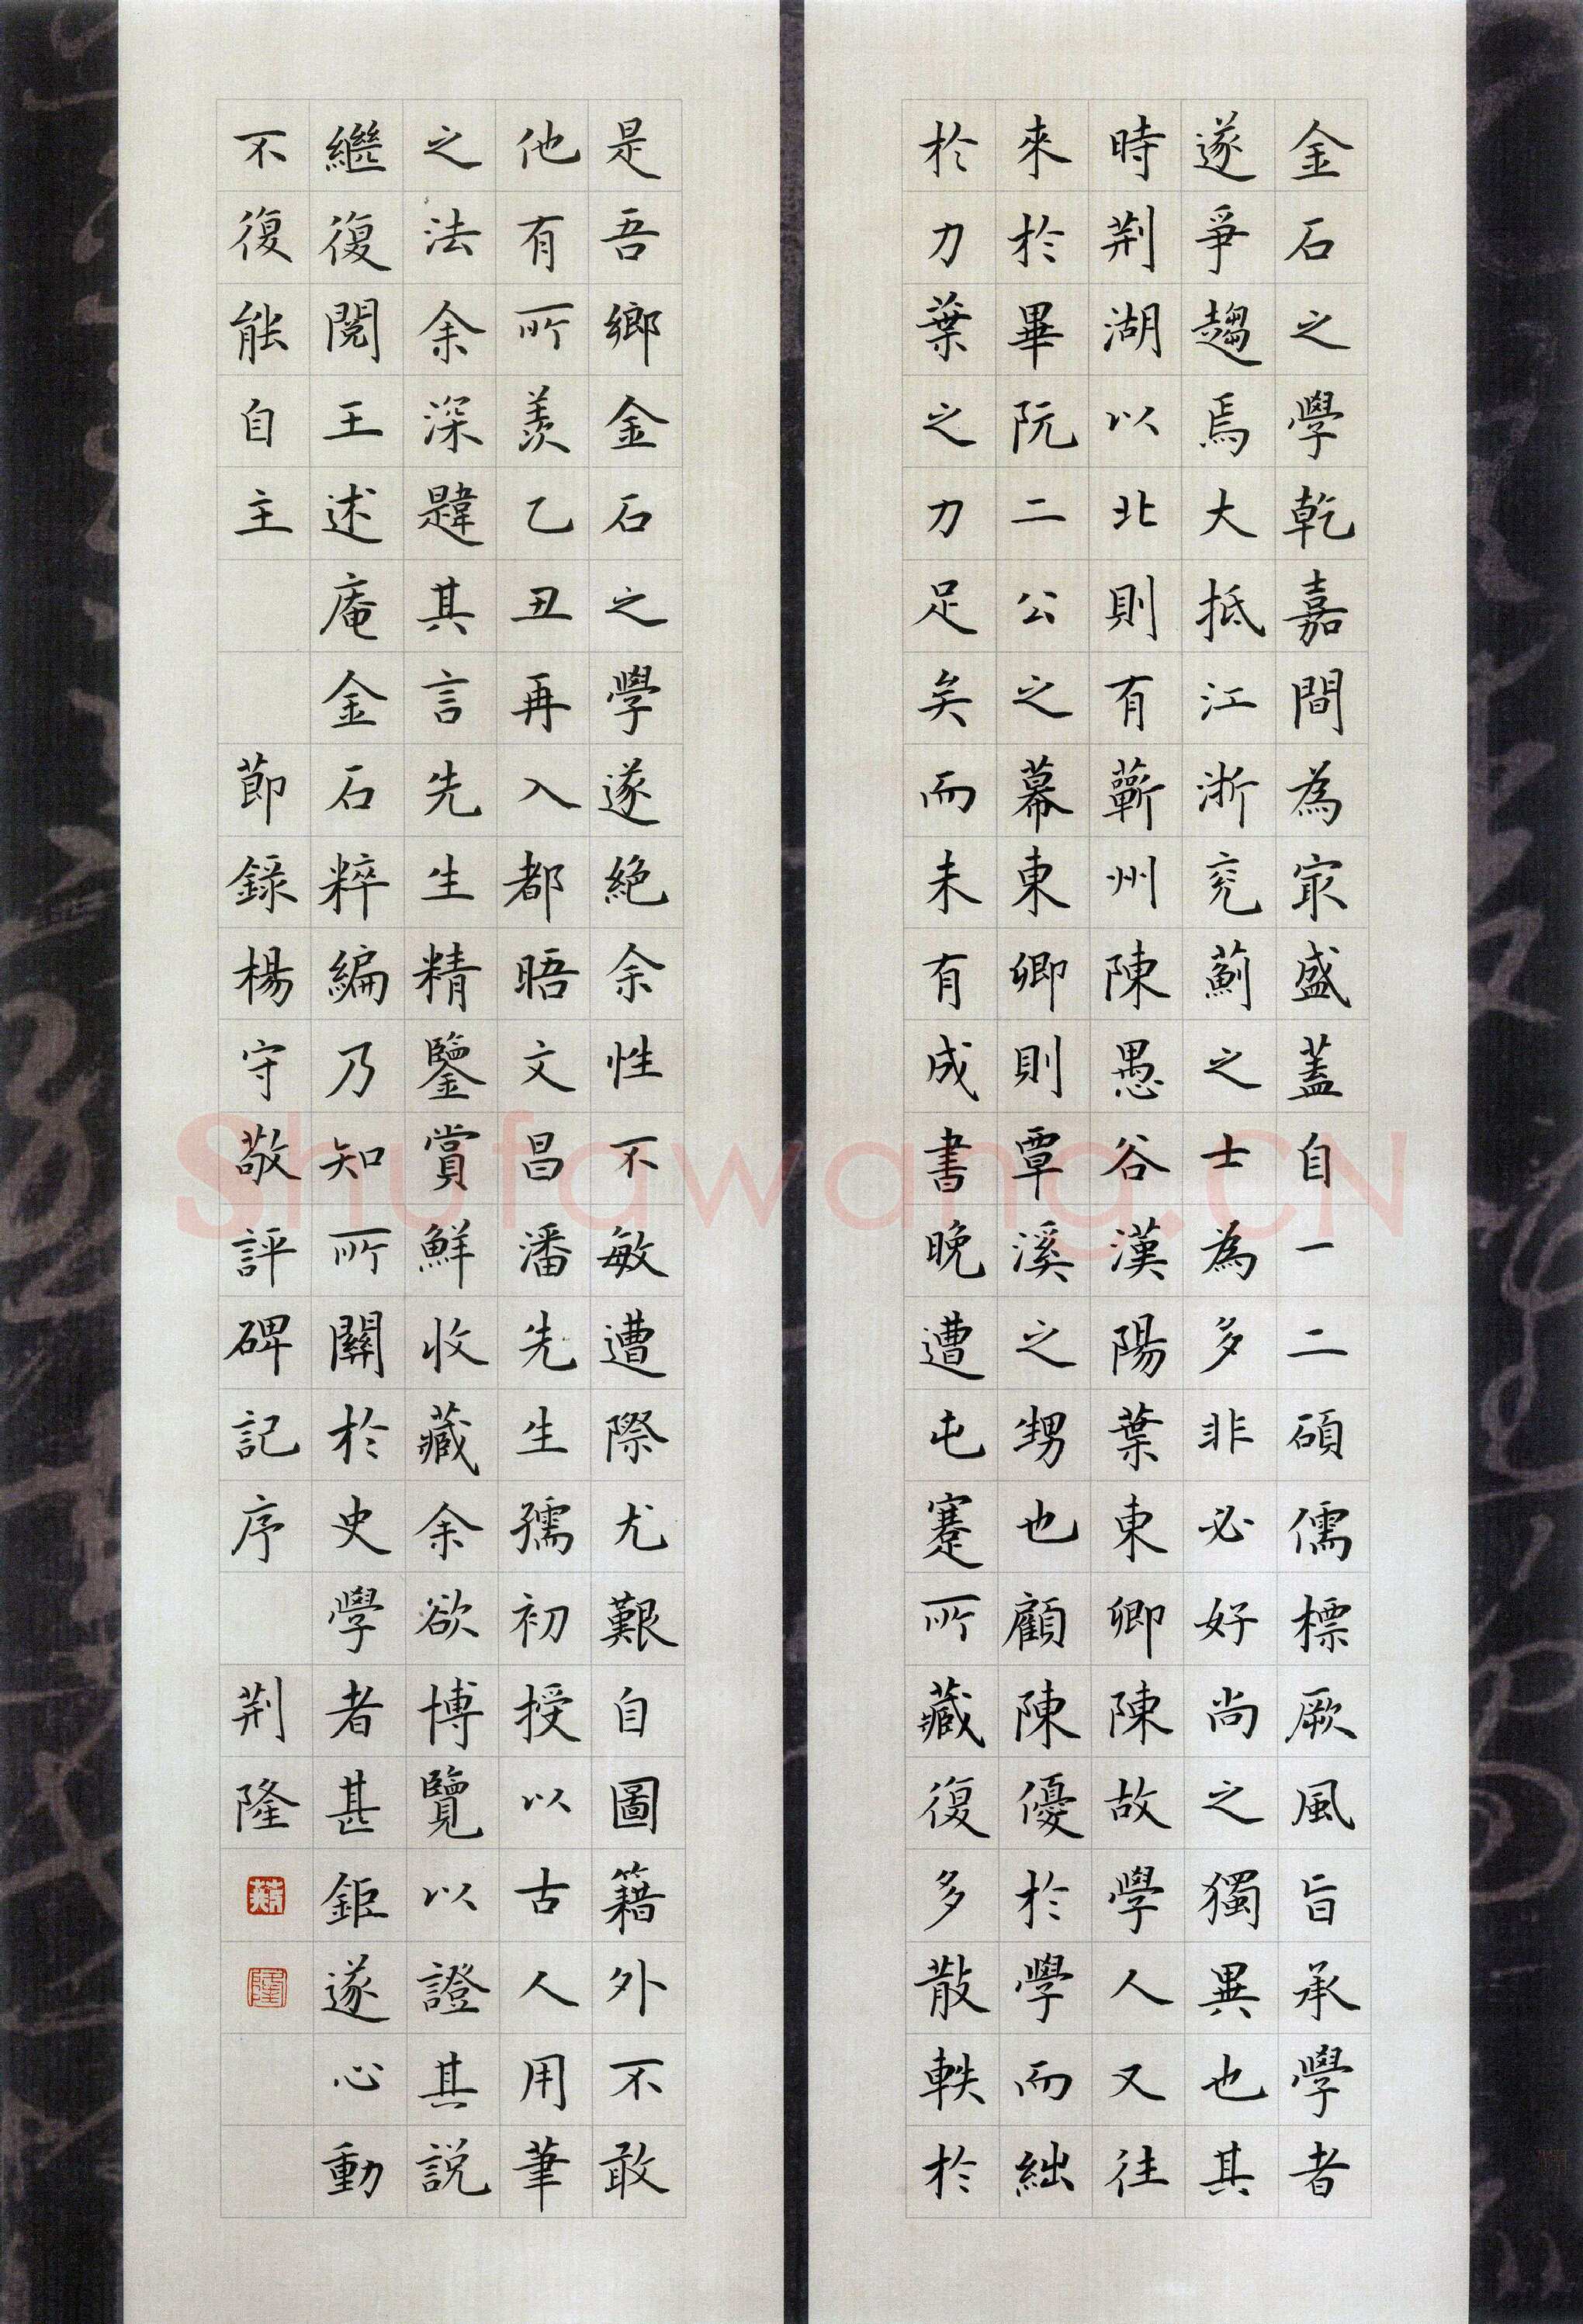 金石之學乾嘉間為冣盛蓋自一二碩儒標厥風旨承學者
遂爭趨焉大抵江浙兖薊之士為多非必好尚之獨異也其
時荆湖以北則有蘄州陳愚谷漢陽葉東卿陳故學人又往
來於畢阮二公之幕東卿則覃溪之甥也顧陳優於學而絀
於力葉之力足矣而未有成書晚遭屯蹇所藏復多散軼於
是吾鄉金石之學遂絶余性不敏遭際尤艱自圖籍外不敢
他有所羨乙丑再入都晤文昌潘先生孺初授以古人用筆
之法余深韙其言先生精鑒賞鮮收藏余欲博覽以證其説
繼復閱王述庵金石粹編乃知所關於史學者甚鉅遂心動
不復能自主 節錄楊守敬評碑記序 荆隆
荆
隆
Shufawang.CN